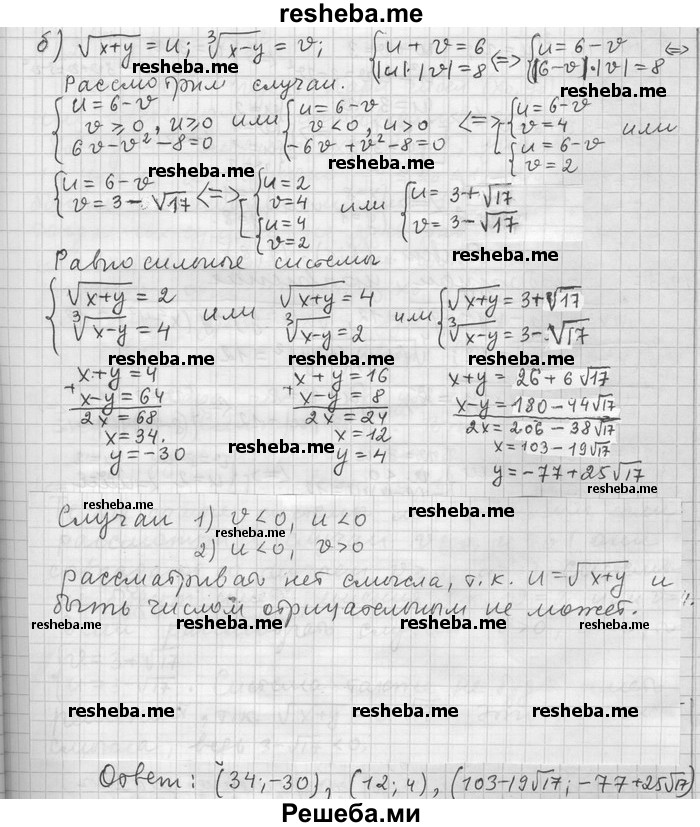 resheba.me
б) √x+y = u; ∛x-y = v; { u + v = 6 |u|·|v| = 8 <=> { u = 6-v |6-v|·|v| = 8 <=>
resheba.me resheba.me
Рассмотрим случаи.
{ u = 6-v v ≥ 0, u ≥ 0 6v-v²-8=0 или { u = 6-v v < 0, u > 0 -6v+v²-8=0 <=> [ { u = 6-v v = 4 { u = 6-v v = 2 или
resheba.me resheba.me
{ u = 6-v v = 3-√17 <=> [ { u = 2 v = 4 { u = 4 v = 2 или { u = 3+√17 v = 3-√17
resheba.me
Равносильные системы
resheba.me
{ √x+y = 2 ∛x-y = 4 или √x+y = 4 ∛x-y = 2 или { √x+y = 3+√17 ∛x-y = 3-√17
resheba.me resheba.me resheba.me
x+y = 4 x+y = 16 x+y = 26+6√17
+ x-y = 64 + x-y = 8 x-y = 180-44√17
2x = 68 2x = 24 2x = 206-38√17
x = 34. x = 12 x = 103-19√17
y = -30 y = 4 y = -77+25√17
resheba.me resheba.me
resheba.me
Случаи 1) v<0, u<0
resheba.me
2) u<0, v>0
resheba.me
рассматривать нет смысла, т.к. u=√x+y и
быть числом отрицательным не может.
resheba.me resheba.me resheba.me resheba.me
resheba.me resheba.me resheba.me
Ответ: (34;-30), (12; 4), (103-19√17; -77+25√17)
Решеба.ми